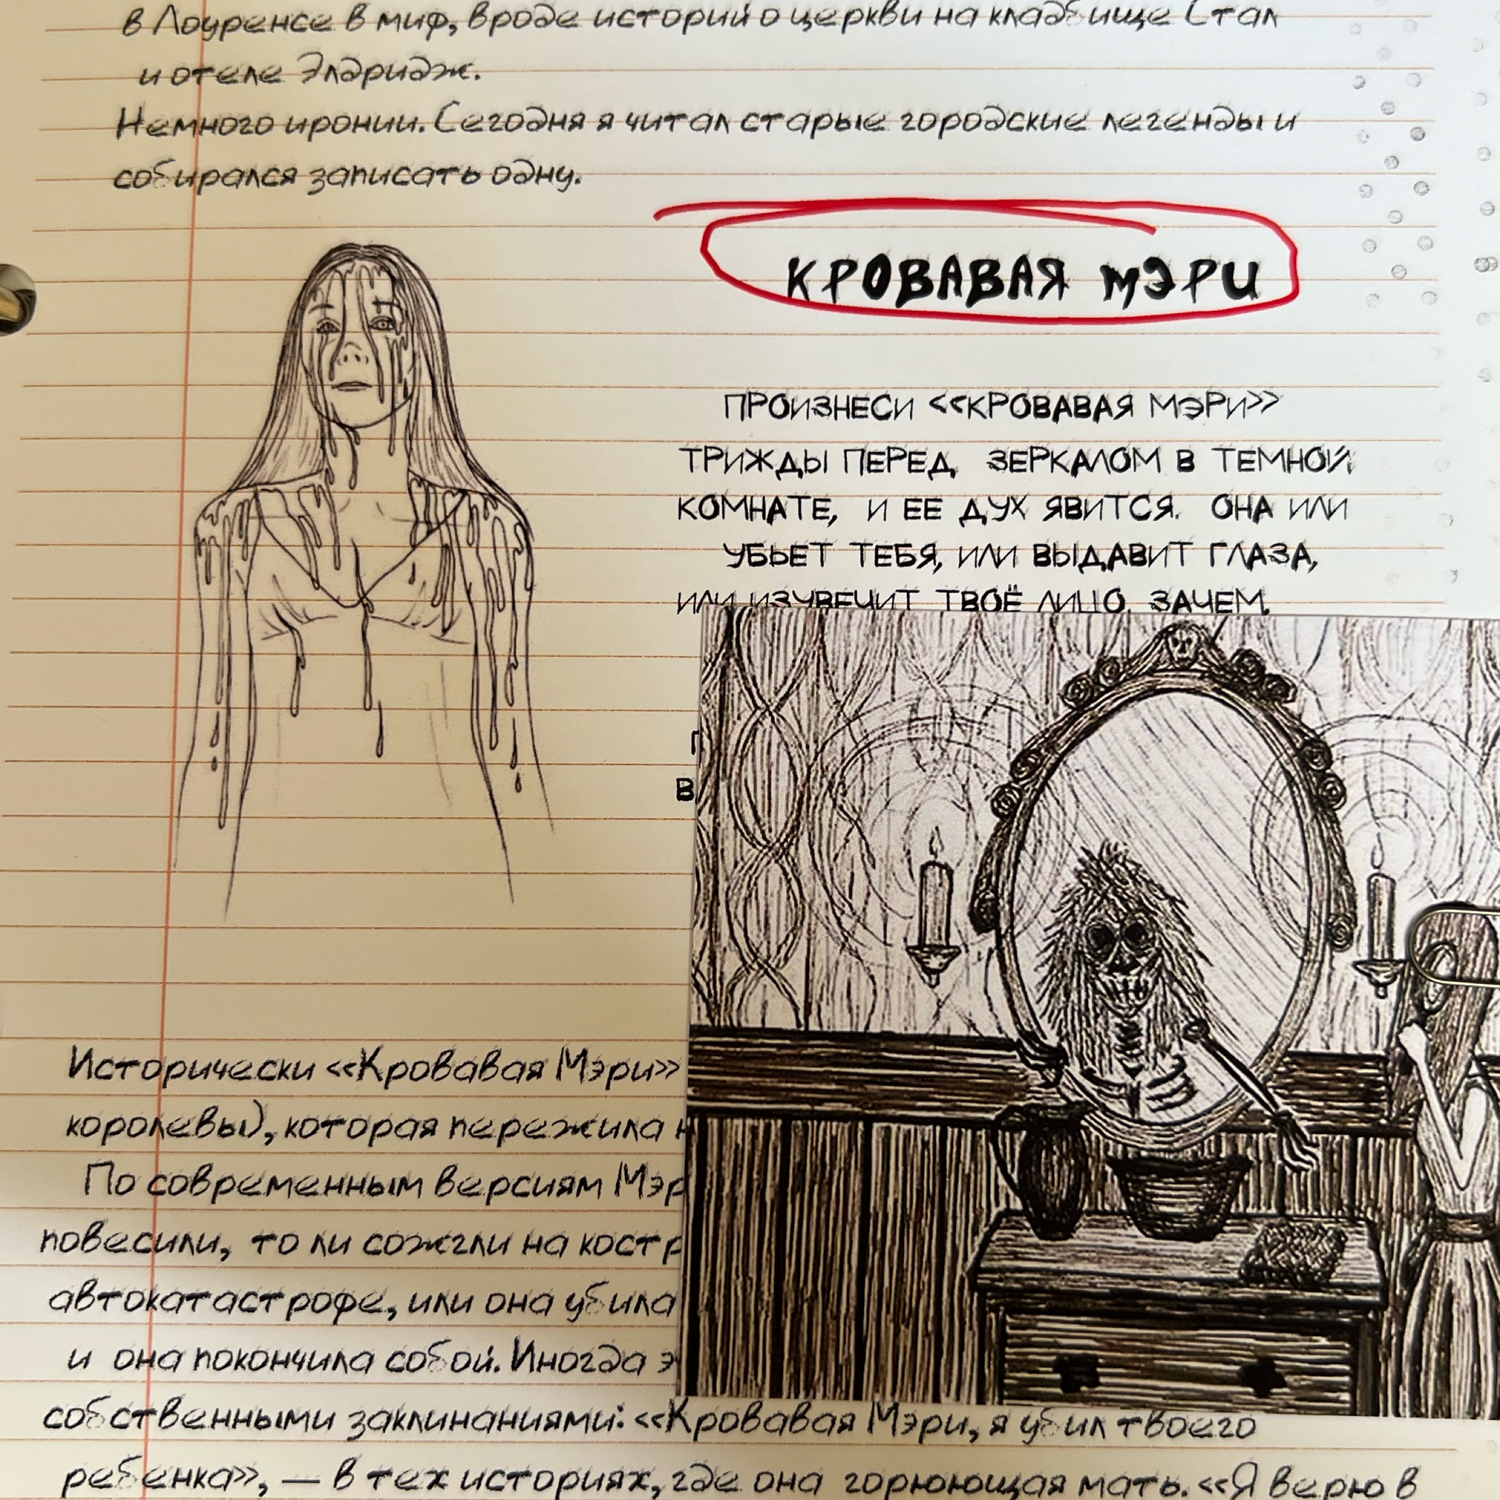 в Лоуренсе в миф, вроде историй о церкви на кладбище Стал
и отеле Элдридж.
Немного иронии. Сегодня я читал старые городские легенды и
собирался записать одну.
КРОВАВАЯ МЭРИ
ПРОИЗНЕСИ <<КРОВАВАЯ МЭРИ>>
ТРИЖДЫ ПЕРЕД ЗЕРКАЛОМ В ТЕМНОЙ
КОМНАТЕ, И ЕЕ ДУХ ЯВИТСЯ. ОНА ИЛИ
УБЬЕТ ТЕБЯ, ИЛИ ВЫДАВИТ ГЛАЗА,
ИЛИ ИЗУВЕЧИТ ТВОЁ ЛИЦО. ЗАЧЕМ,
В
Исторически <<Кровавая Мэри>>
королевы), которая пережила
По современным версиям Мэр
повесили, то ли сожгли на костр
автокатастрофе, или она убила
и она покончила собой. Иногда
собственными заклинаниями: <<Кровавая Мэри, я убил твоего
ребенка>>, — в тех историях, где она горюющая мать. <<Я верю в